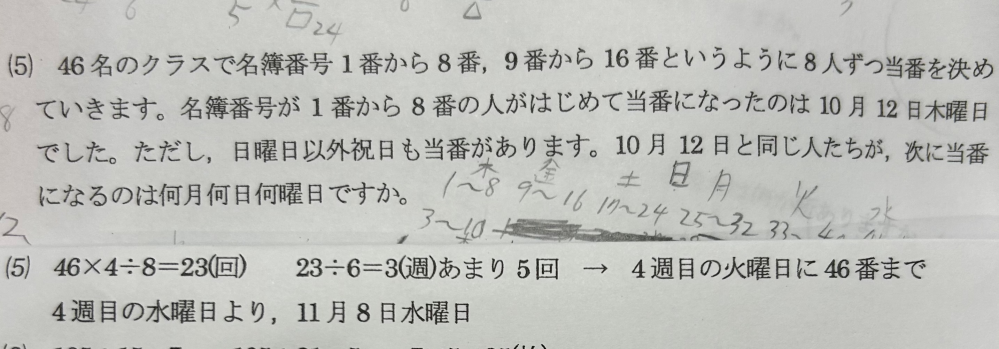 5 × 24
(5) 46名のクラスで名簿番号1番から8番，9番から16番というように8人ずつ当番を決め
ていきます。名簿番号が1番から8番の人がはじめて当番になったのは10月12日木曜日
8
でした。ただし，日曜日以外祝日も当番があります。10月12日と同じ人たちが，次に当番
になるのは何月何日何曜日ですか。
木 金 土 日 月 火 水
1〜8 9〜16 17〜24 25〜32 33〜4
3〜10
2
(5) 46×4÷8=23(回)　23÷6=3(週)あまり5回　→　4週目の火曜日に46番まで
4週目の水曜日より，11月8日水曜日